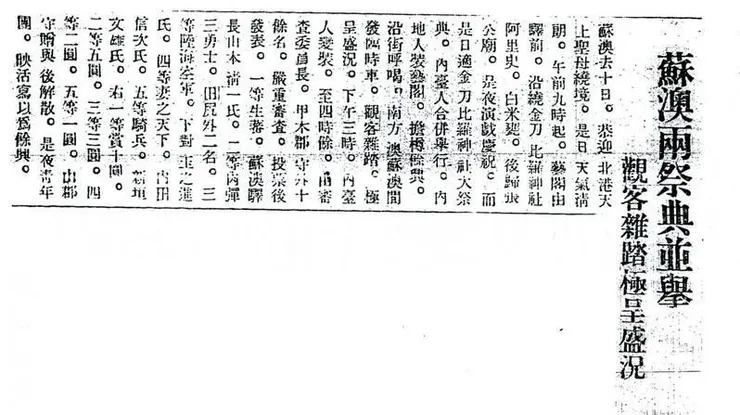 蘇澳兩祭典並舉
觀客雜踏極呈盛況
蘇澳去十日。恭迎北港天
上聖母繞境。是日天氣清
朗。午前九時起。藝閣由
驛前。沿繞金刀比羅神社
阿里史。白米甕。後歸張
公廟。是夜演戲慶祝。而
是日適金刀比羅神社大祭
典。內臺人合併舉行。內
地人裝藝閣。擔樽條興。
沿街呼喝。南方澳蘇澳間
發臨時車。觀客雜踏。極
呈盛況。下午三時。內臺
人變裝。至四時餘。由審
查委員長。甲木郡守外十
餘名。嚴重審查。投票後
發表。一等生蕃。蘇澳驛
長山本清一氏。二等肉彈
三勇士。田尻外二名。三
等陸海空軍。下對
氏。四等妻之天下。內田
信次氏。五等騎兵。新垣
文雄氏。右一等賞十圓。
二等五圓。三等三圓。四
等二圓。五等一圓。由郡
守贈與後解散。是夜青年
團。映活寫以為餘興。